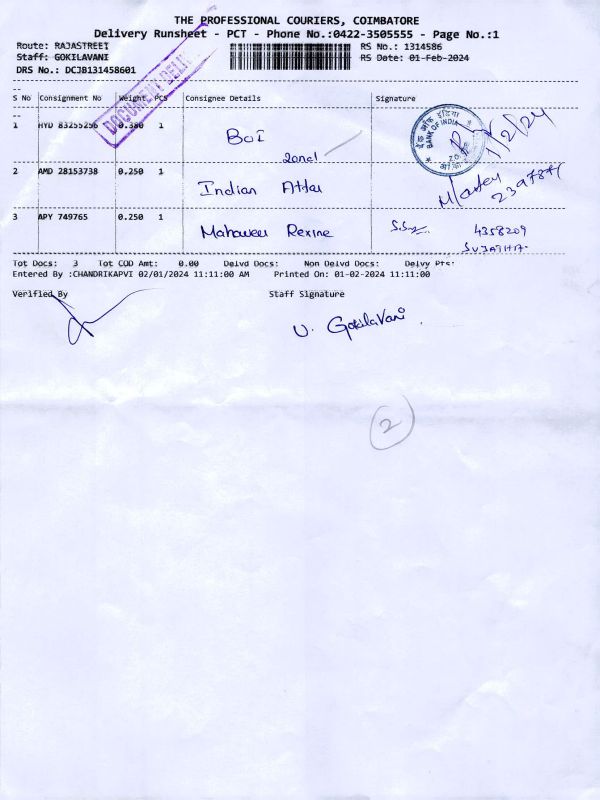 THE PROFESSIONAL COURIERS, COIMBATORE
Delivery Runsheet - PCT - Phone No.:0422-3505555 - Page No.:1
Route: RAJASTREET RS No.: 1314586
Staff: GOKILAVANI RS Date: 01-Feb-2024
DRS No.: DCJB131458601
DOCUMENT DELI
S No Consignment No Weight PCS Consignee Details Signature
1 HYD 83255256 0.380 1 BOI
zonal
बैंक ऑफ इंडिया
BANK OF INDIA
1/2/24
2 AMD 28153738 0.250 1 Indian Attar
3 APY 749765 0.250 1 Mahaveer Rexine 4358209
Tot Docs: 3 Tot COD Amt: 0.00 Delvd Docs: Non Delvd Docs: Delvy Pts:
Entered By :CHANDRIKAPVI 02/01/2024 11:11:00 AM Printed On: 01-02-2024 11:11:00
Verified By Staff Signature
U. GokilaVani
2